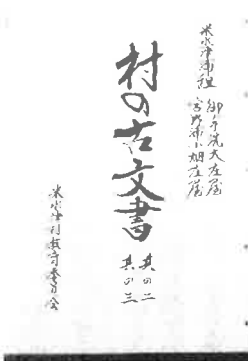 米水津浦組 御手洗大庄屋
宮野浦小畑庄屋
村の古文書
其の二
其の三
米水津村教育委員会